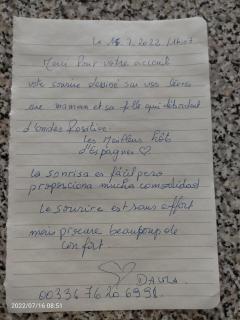 Le 15.7.2022 / 11h07
Merci Pour votre accueil
votre sourire dessiné sur vos lèvres
une maman et sa fille qui débordent
d'ondes Positive.
Les Meilleurs
d'Espagne ♡
La sonrisa es fácil pero
proporciona mucha comodidad
Le sourire est sans effort
mais procure beaucoup de
confort
0033676206991.
2022/07/16 08:51